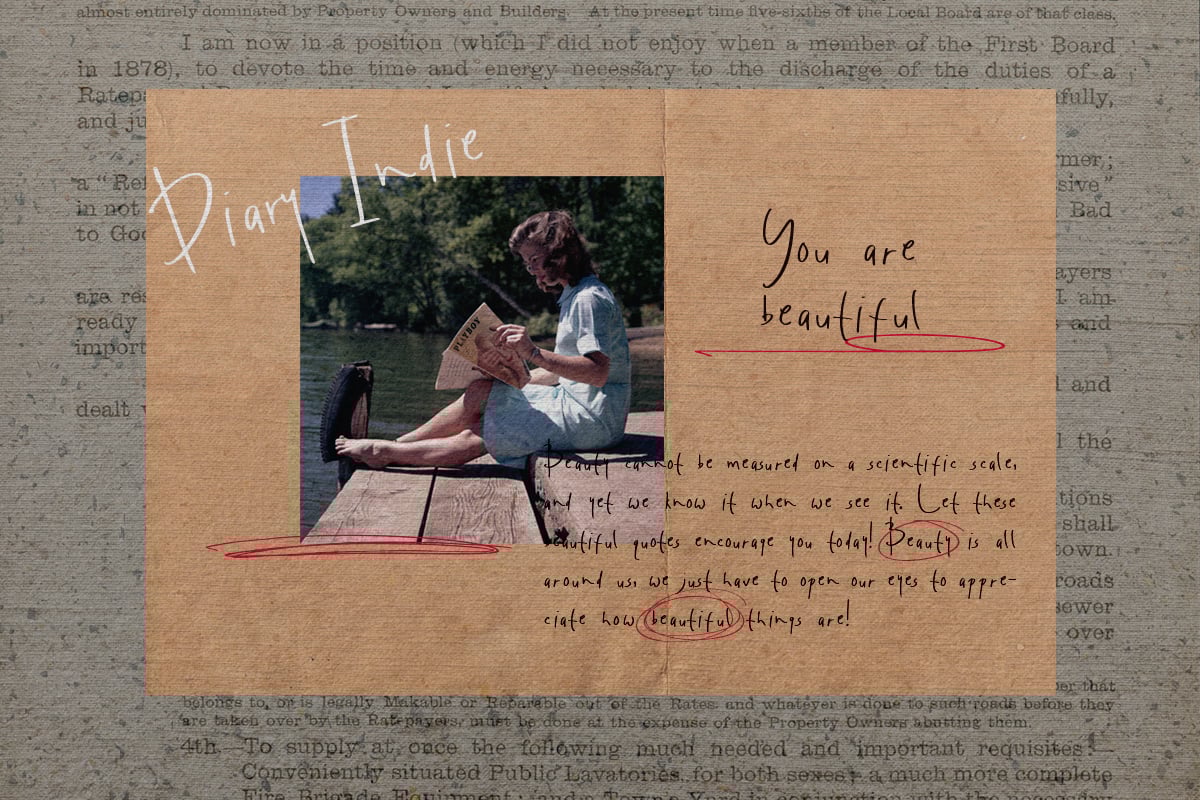 almost entirely dominated by Property Owners and Builders. At the present time five-sixths of the Local Board are of that class.
I am now in a position (which I did not enjoy when a member of the First Board
in 1878), to devote the time and energy necessary to the discharge of the duties of a
and
a
in not Bad
to
are
ready and
import
dealt and
the
shall
town.
roads
sewer
over
Diary Indie
PLAYBOY
You are
beautiful
Beauty cannot be measured on a scientific scale,
and yet we know it when we see it. Let these
beautiful quotes encourage you today! Beauty is all
around us, we just have to open our eyes to appre-
ciate how beautiful things are!
that
belongs to, or is legally Makable or Reparable out of the Rates, and whatever is done to such roads before they
are taken over by the Ratepayers, must be done at the expense of the Property Owners abutting them.
4th.—To supply at once the following much needed and important requisites:—
Conveniently situated Public Lavatories, for both sexes; a much more complete
Fire Brigade Equipment; and a Town's Yard in conjunction with the